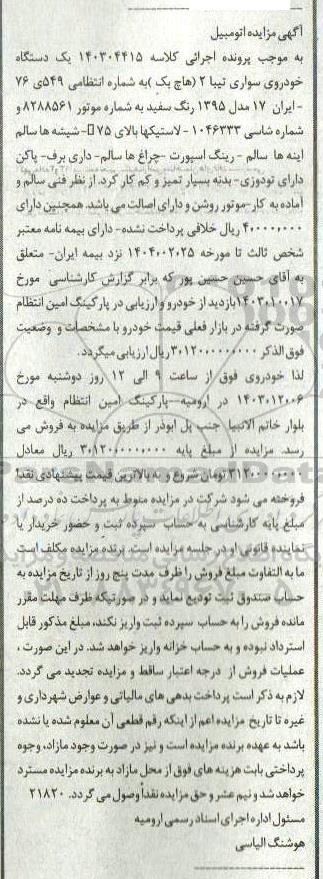 آگهی مزایده اتومبیل
به موجب پرونده اجرائی کلاسه ۱۴۰۳۰۴۴۱۵ یک دستگاه
خودروی سواری تیبا ۲ (هاچ بک )به شماره انتظامی ۵۴۹ی ۷۶
- ایران ۱۷ مدل ۱۳۹۵ رنگ سفید به شماره موتور ۸۲۸۸۵۶۱ و
شماره شاسی ۱۰۴۶۳۳۳ - لاستیکها بالای ۷۵ - شیشه ها سالم
اینه ها سالم - رینگ اسپورت -چراغ ها سالم- داری برف- پاکن
دارای تودوزی- بدنه بسیار تمیز و کم کار کرد. از نظر فنی سالم و
آماده به کار-موتور روشن و دارای اصالت می باشد. همچنین دارای
۴۰۰۰۰۰۰۰ ریال خلافی پرداخت نشده- دارای بیمه نامه معتبر
شخص ثالث تا مورخه ۱۴۰۴۰۲۰۲۵ نزد بیمه ایران- متعلق
به آقای حسین حسین پور که برابر گزارش کارشناسی مورخ
۱۴۰۳۰۱۰۰۱۷بازدید از خودرو و ارزیابی در پارکینگ امین انتظام
صورت گرفته در بازار فعلی قیمت خودرو با مشخصات و وضعیت
فوق الذکر ۳۰۱۲۰۰۰۰۰۰۰۰۰ ریال ارزیابی میگردد.
لذا خودروی فوق از ساعت ۹ الی ۱۲ روز دوشنبه مورخ
۱۴۰۳۰۱۲۰۰۶ در ارومیه--پارکینگ امین انتظام واقع در
بلوار خاتم الانبیا جنب پل ابوذر از طریق مزایده به فروش می
رسد. مزایده از مبلغ پایه ۳۰۱۲۰۰۰۰۰۰۰۰۰ ریال معادل
تومان شروع و به بالاترین قیمت پیشنهادی نقدا
فروخته می شود شرکت در مزایده منوط به پرداخت ده درصد از
مبلغ پایه کارشناسی به حساب سپرده ثبت و حضور خریدار یا
نماینده قانونی او در جلسه مزایده است. برنده مزایده مکلف است
ما به التفاوت مبلغ فروش را ظرف مدت پنج روز از تاریخ مزایده به
حساب صندوق ثبت تودیع نماید و در صورتیکه ظرف مهلت مقرر
مانده فروش را به حساب سپرده ثبت واریز نکند، مبلغ مذکور قابل
استرداد نبوده و به حساب خزانه واریز خواهد شد. در این صورت ،
عملیات فروش از درجه اعتبار ساقط و مزایده تجدید می گردد.
لازم به ذکر است پرداخت بدهی های مالیاتی و عوارض شهرداری و
غیره تا تاریخ مزایده اعم از اینکه رقم قطعی آن معلوم شده یا نشده
باشد به عهده برنده مزایده است و نیز در صورت وجود مازاد، وجوه
پرداختی بابت هزینه های فوق از محل مازاد به برنده مزایده مسترد
خواهد شد و نیم عشر و حق مزایده نقداً وصول می گردد. ۲۱۸۲۰
مسئول اداره اجرای اسناد رسمی ارومیه
هوشنگ الیاسی